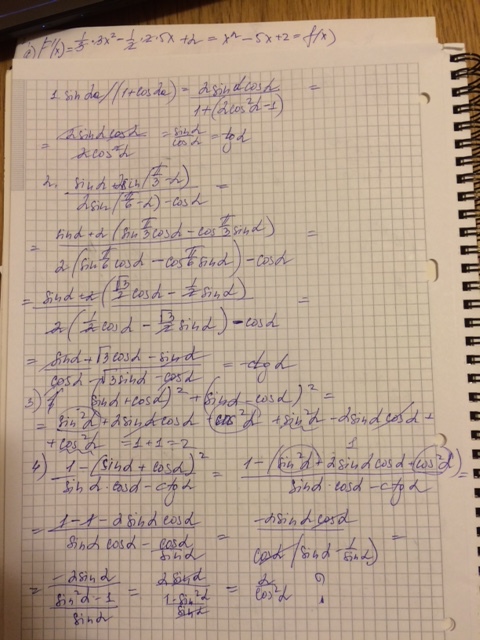 F'(x) = 1/3 · 3x² - 1/2 · 2 · 5x + 2 = x² - 5x + 2 = f(x)
1. sin2α/(1+cos2α) = 2sinαcosα / 1+(2cos²α-1) =
= 2sinαcosα / 2cos²α = sinα / cosα = tgα
2. sinα + 2sin(π/3 - α) / 2sin(π/6 - α) - cosα =
= sinα + 2(sin π/3 cosα - cos π/3 sinα) / 2(sin π/6 cosα - cos π/6 sinα) - cosα =
= sinα + 2(√3/2 cosα - 1/2 sinα) / 2(1/2 cosα - √3/2 sinα) - cosα =
= sinα + √3cosα - sinα / cosα - √3sinα - cosα = -ctgα
3) (sinα + cosα)² + (sinα - cosα)² =
= sin²α + 2sinαcosα + cos²α + sin²α - 2sinαcosα +
+ cos²α = 1 + 1 = 2
4) 1 - (sinα + cosα)² / sinα · cosα - ctgα = 1 - (sin²α + 2sinαcosα + cos²α) / sinα · cosα - ctgα =
= 1 - 1 - 2sinαcosα / sinαcosα - cosα/sinα = -2sinαcosα / cosα(sinα - 1/sinα) =
= -2sinα / (sin²α - 1 / sinα) = 2sinα / (1 - sin²α / sinα) = 2 / cos²α ?